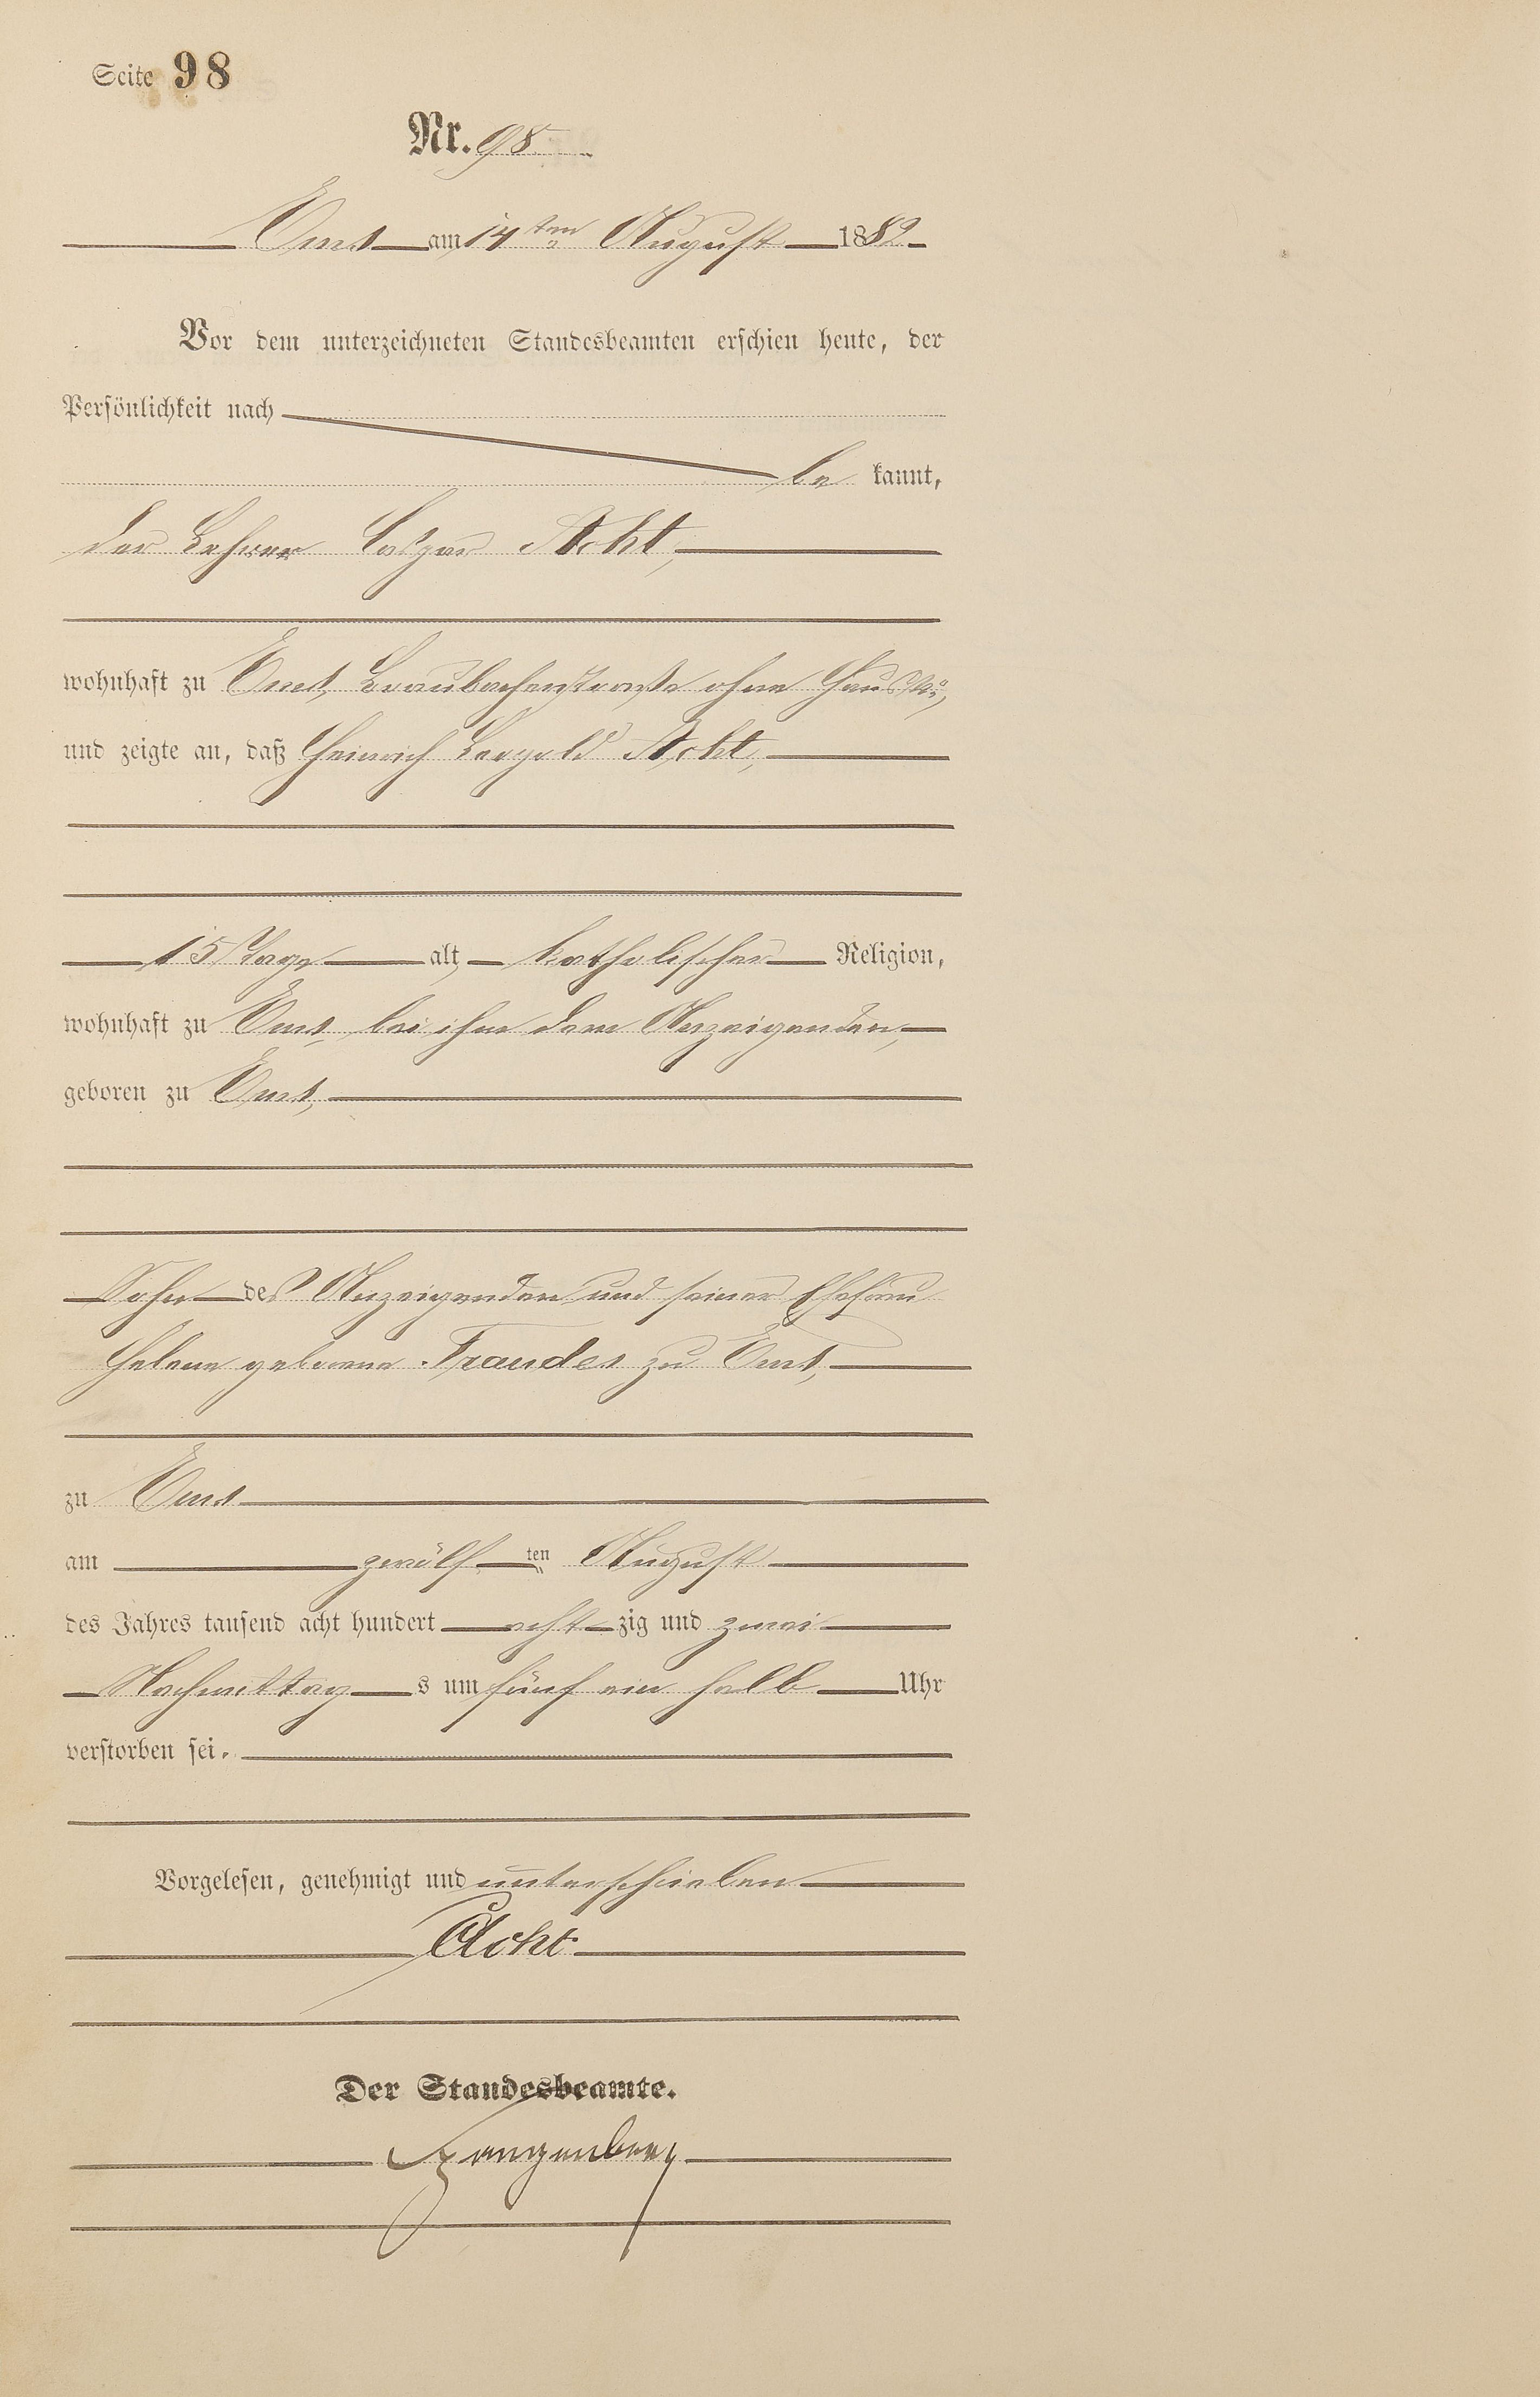 Seite 98
Nr. 98
Ems am 14ten August 1882
Vor dem unterzeichneten Standesbeamten erschien heute, der
Persönlichkeit nach
be kannt,
der Lehrer Caspar Acht,
wohnhaft zu Ems, Braubacherstraße ohne Haus No,
und zeigte an, daß Heinrich Leopold Acht,
15 Tage alt, katholischer Religion,
wohnhaft zu Ems, bei ihm dem Anzeigenden,
geboren zu Ems,
Sohn des Anzeigenden und seiner Ehefrau
Helene geborene Traudes zu Ems,
zu Ems
am zwölften August
des Jahres tausend acht hundert acht zig und zwei
Nachmittag s um fünf ein halb Uhr
verstorben sei.
Vorgelesen, genehmigt und unterschrieben
Acht
Der Standesbeamte.